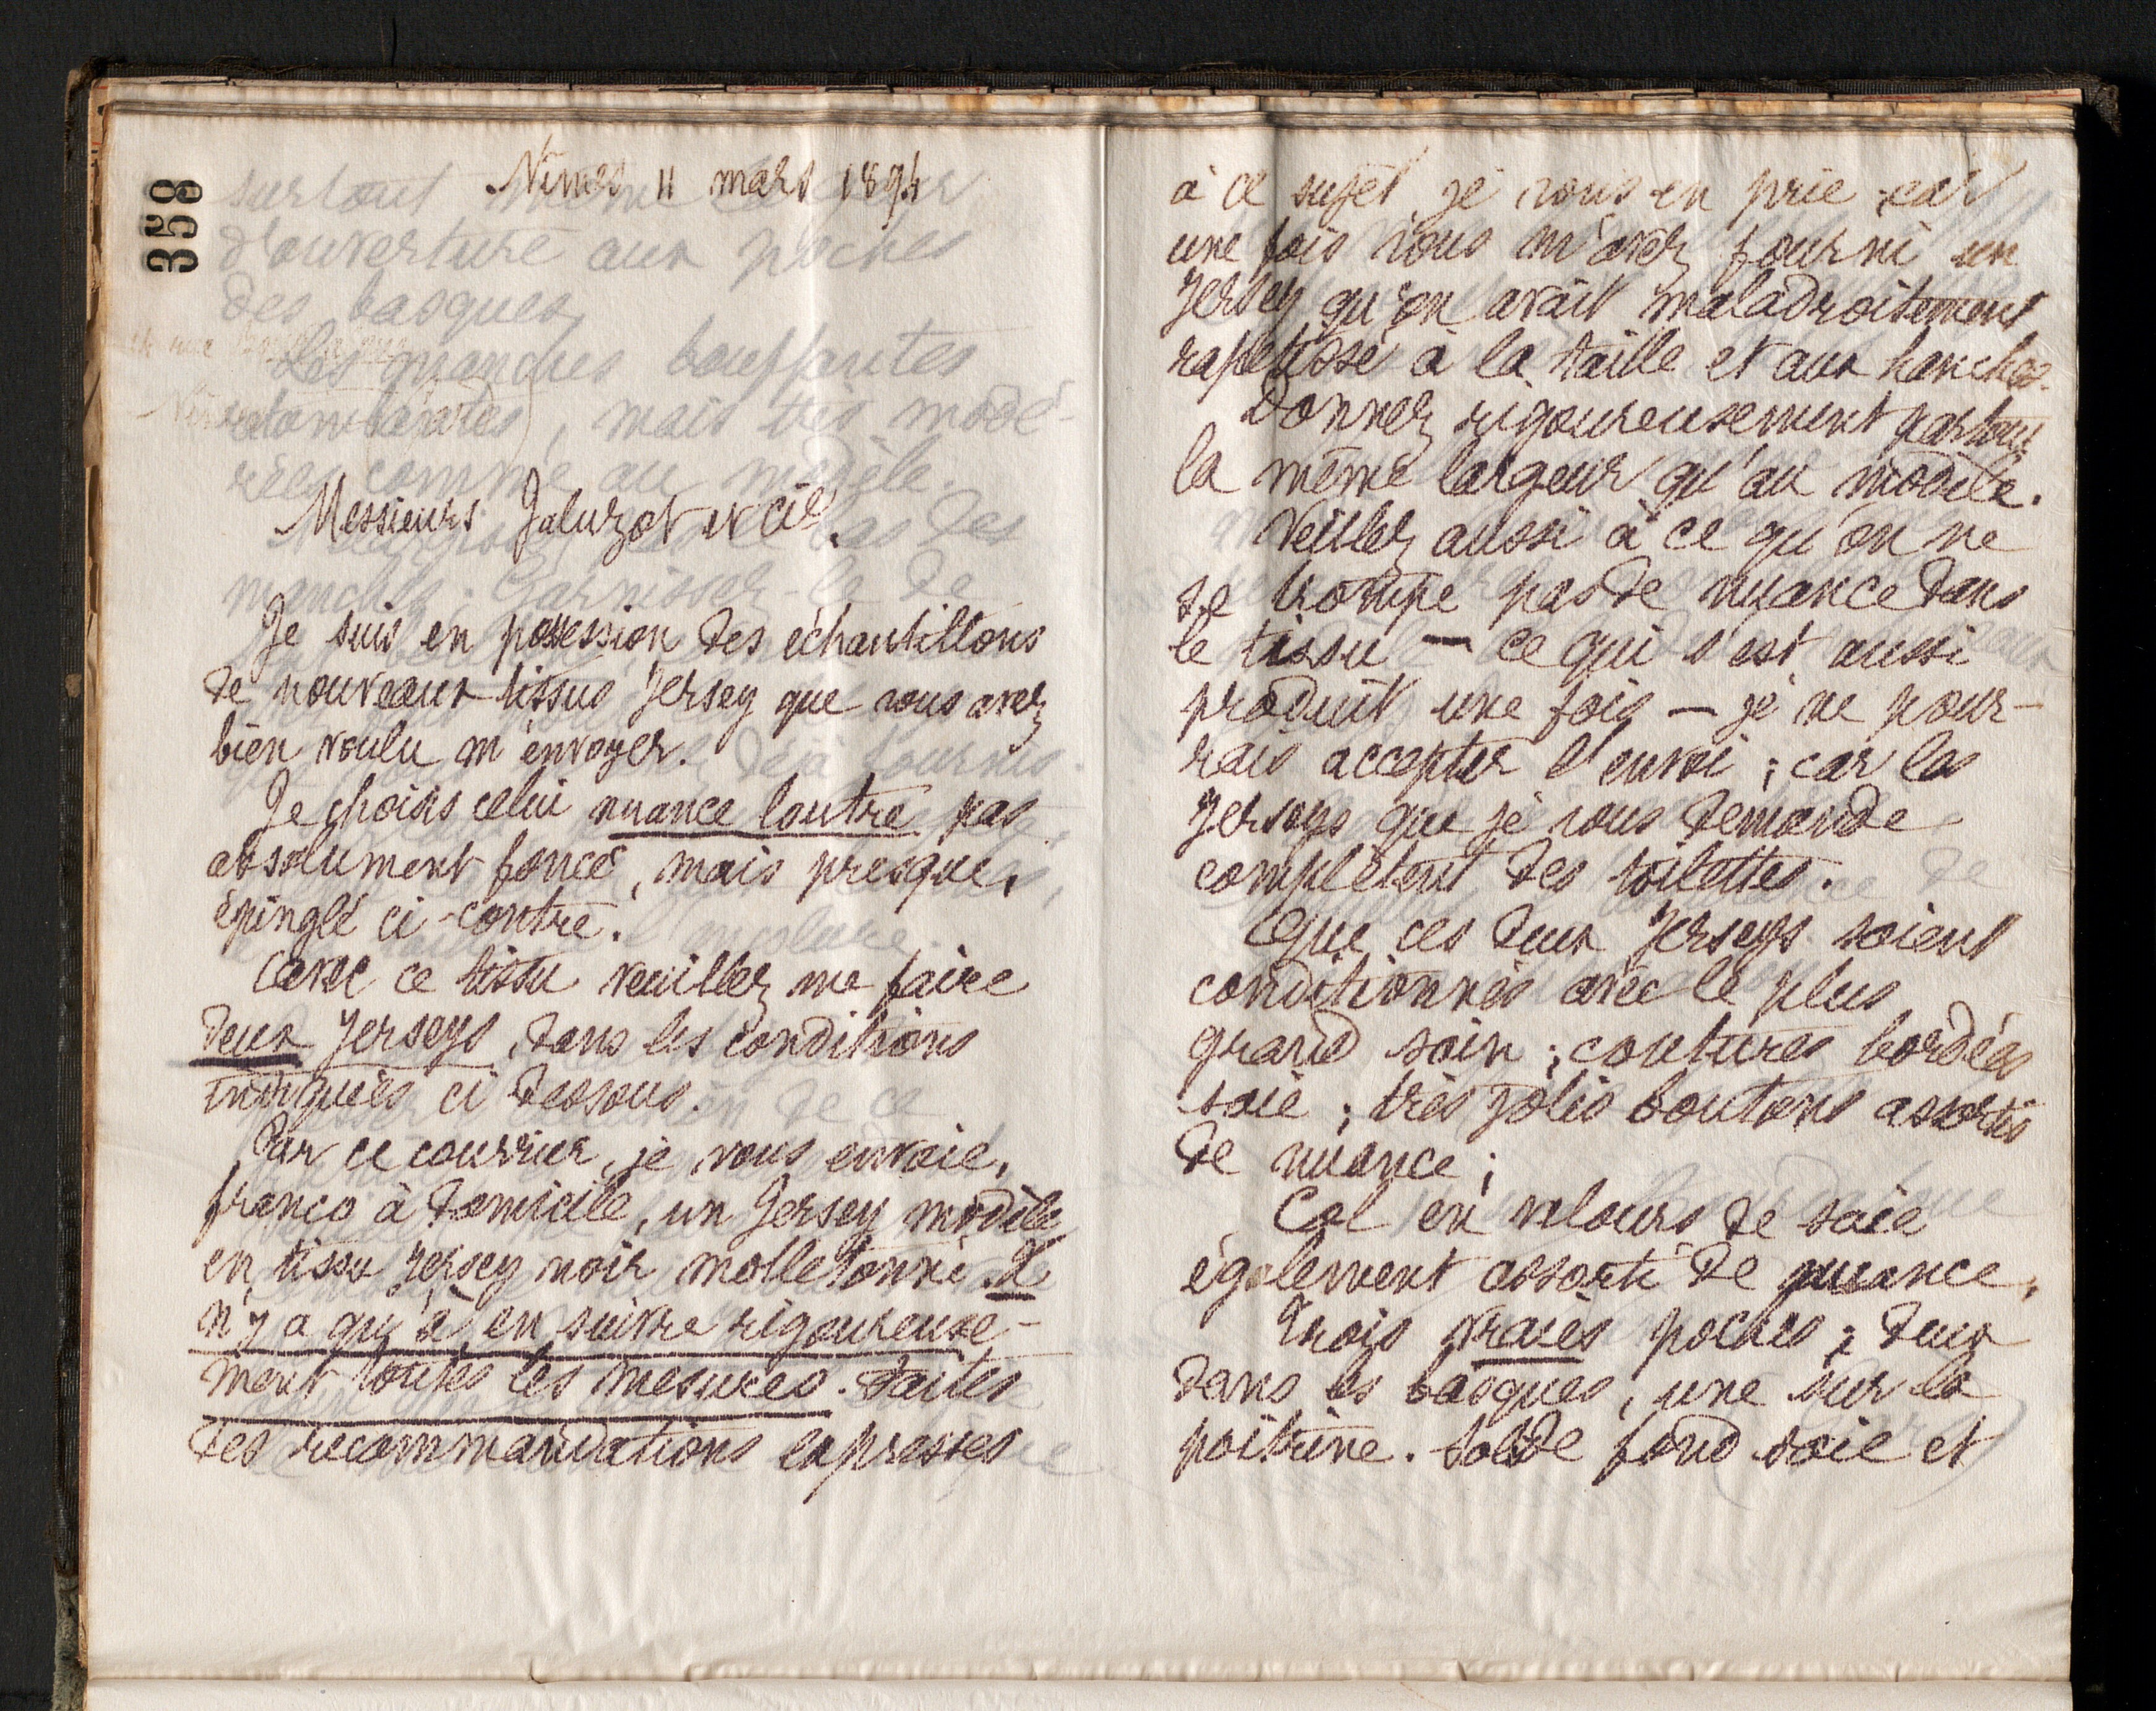 358
Nîmes 11 mars 1894
Messieurs Jaluzot et Cie.
Je suis en possession des échantillons
de nouveaux tissus Jersey que vous avez
bien voulu m'envoyer.
Je choisis celui nuance loutre pas
absolument foncé, mais presque,
épinglé ci-contre.
Avec ce tissu veuillez me faire
deux Jerseys, dans les conditions
indiquées ci dessous.
Par ce courrier, je vous envoie,
franco à domicile, un Jersey modèle
en tissu Jersey noir molletonné. Il
n'y a qu'à en suivre rigoureuse-
ment toutes les mesures. Faites
des recommandations expresses
à ce sujet je vous en prie car
une fois vous m'avez fourni un
Jersey qu'on avait maladroitement
rapetissé à la taille et aux hanches.
Donnez rigoureusement partout
la même largeur qu'au modèle.
Veillez aussi à ce qu'on ne
se trompe pas de nuance dans
le tissu — ce qui s'est aussi
produit une fois — je ne pour-
rais accepter l'envoi ; car les
Jerseys que je vous demande
complètent des toilettes.
Que ces deux Jerseys soient
conditionnés avec le plus
grand soin ; coutures bordées
soie ; très jolis boutons assortis
de nuance ;
Col en velours de soie
également assorti de nuance,
Trois vraies poches ; deux
dans les basques, une sur la
poitrine. Solide fond soie et